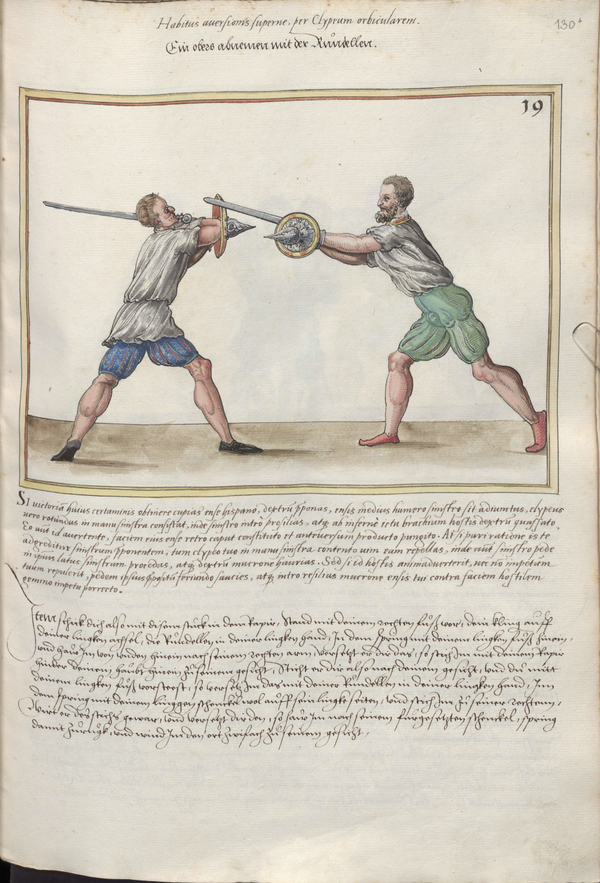 Habitus aversionis superne, per Clypeum orbicularem.
130
Ein obers abnemen mit der Rundellen.
19
SI victoriam huius certaminis obtinere cupias ense hispano, dextrum pponas, ensis medius humero sinistro sit admotus, clypeus
vero rotundus in manu sinistra consistat, inde sinistro intro prosilias, atq ab inferne ictu brachium hostis dextrum quassato
Eo aut id avertente, faciem eius ense retro caput constituto et antrorsum producto pungito. At si pari ratione is te
adgreditur sinistrum pponentem, tum clypeo tuo in manu sinistra contento vim eam repellas, inde aut sinistro pede
in ipsius latus sinistrum procedas, atq dextrum mucrone haurias. Sed si id hostis animadverterit, nec no impetum
tuum repulerit, pedem ipsius ppositum feriundo saucies, atq intro resilius mucrone ensis tui contra faciem hostilem
gemino impetu porrecto.
Item schick dich also mit disem stuck in dem Rapir, Stand mit deinem rechten fuß vor, dein kling auff
deiner lingken achsel, die Rundellen in deiner lingken hand, In dem spring mit deinem lingken fuß hinein,
und haw Im von unden hinen nach seinem rechten arm, versetzt er dir das, so stich Im mit deinem Rapir
hinder deinem haubt hinein zu seinem gesicht, Sticht er dir also nach deinem gesicht, und du mitt
deinem lingken fuß vorsteest, so versetz Im das mit deiner Rundellen in deiner lingken hand, Im
dem spring mit deinem linggen schenckel wol auff sein lingke seiten, und stich Im zu seiner rechten,
Wirt er des stichs gewar, und versetzt dir den, so haw Im nach seinem furgesetzten schenckel, spring
damit zuruck, und wind Im den ort zwifach zu seinem gesicht.